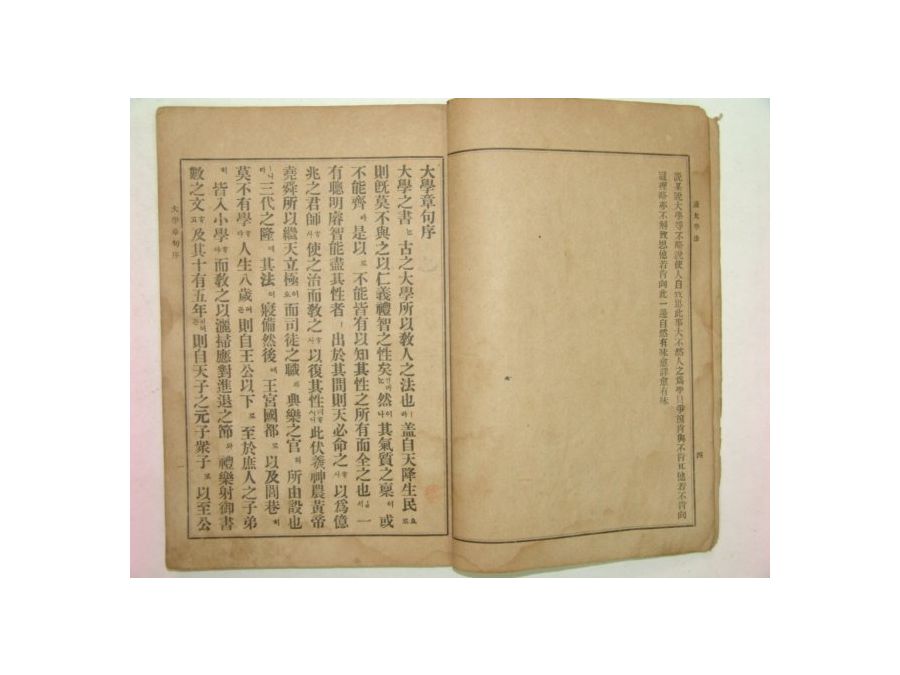 讀大學法
說某說大學等不略說使人自致思此事大不然人之爲學只爭箇肯與不肯耳他若不肯向
這裡略亦不解致思他若肯向此一邊自然有味愈詳愈有味
四
大學章句序
大學之書는古之大學所以敎人之法也라盖自天降生民으로
則旣莫不與之以仁義禮智之性矣언마는然이나其氣質之稟이或
不能齊라是以로不能皆有以知其性之所有而全之也ㅣ一
有聰明睿智能盡其性者ㅣ出於其間則天必命之以爲億
兆之君師使之治而敎之以復其性此伏羲神農黃帝
堯舜所以繼天立極이오而司徒之職과典樂之官의所由設也
ㅣ니라三代之隆에其法이寢備然後에王宮國都로以及閭巷히
莫不有學人生八歲則自王公以下로至於庶人之子弟
히皆入小學而敎之以灑掃應對進退之節과禮樂射御書
數之文及其十有五年則自天子之元子衆子로以至公
大學章句序